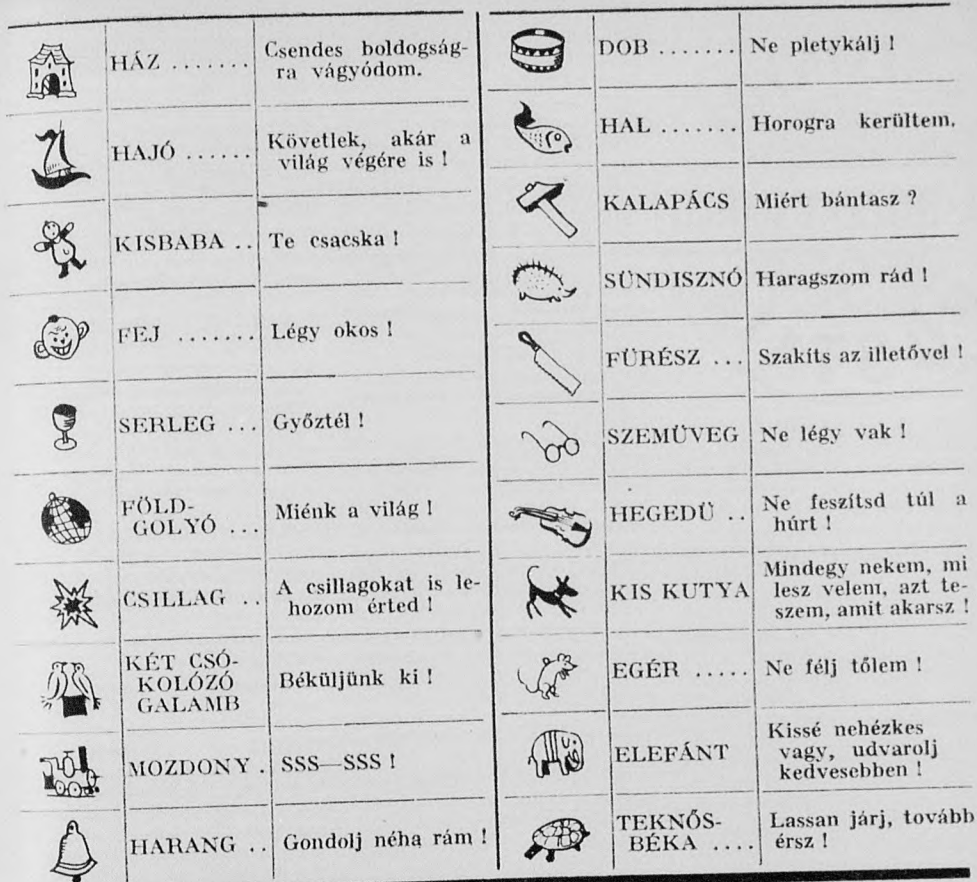 HÁZ ....... Csendes boldogság-
ra vágyódom.
HAJÓ ...... Követlek, akár a
világ végére is !
KISBABA .. Te csacska !
FEJ ....... Légy okos !
SERLEG ... Győztél !
FÖLD-
GOLYÓ ... Miénk a világ !
CSILLAG .. A csillagokat is le-
hozom érted !
KÉT CSÓ-
KOLÓZÓ
GALAMB Béküljünk ki !
MOZDONY . SSS—SSS !
HARANG .. Gondolj néha rám !
DOB ....... Ne pletykálj !
HAL ....... Horogra kerültem.
KALAPÁCS Miért bántasz ?
SÜNDISZNÓ Haragszom rád !
FÜRÉSZ ... Szakíts az illetővel !
SZEMÜVEG Ne légy vak !
HEGEDÜ .. Ne feszítsd túl a
húrt !
KIS KUTYA Mindegy nekem, mi
lesz velem, azt te-
szem, amit akarsz !
EGÉR ..... Ne félj tőlem !
ELEFÁNT Kissé nehézkes
vagy, udvarolj
kedvesebben !
TEKNŐS-
BÉKA .... Lassan járj, tovább
érsz !